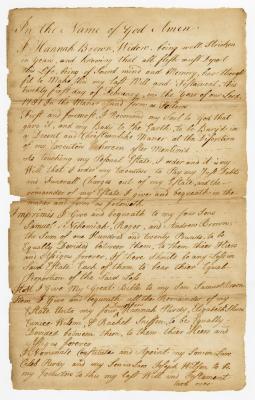 In the Name of God Amen
I Hannah Brown, Widow, being well Striken
in years, and knowing that all flesh must Squal
this Life, being of Sound mind and Memory, have thought
fit to Make this my last Will and Testament, this
twenty first day of February, in the Year of our Lord,
1781 In the Maner and form as follows
First and foremost, I Recomend my Soul to God that
gave it, and my Body to the Earth, to be Buryed in
a Decent and Christian like Maner at the discretion
of my Executors hereafter Mentioned
As Touching my Personal Estate, I order and it is my
Will that I order my Executors to Pay my Just Debts
and funarall Charges out of my Estate, and the
remainder of my Estate I give and bequeath in the
maner and form as followeth
Imprimis I Give and bequeath to my four Sons
Samuel, Nehemiah, Roger, and Andrew Brown,
the Sum of one Hundred and twenty Pounds to be
Equally Devided between them, to them their Heirs
and Assigns forever,
Said Estate Each of them to bear their Equal
Proportion of the Said Loss
Item I Give My Great Bible to my Son Samuel Brown
Item I Give and bequeath all the Remainder of my
Estate Unto my four Hannah Hardy, Elizabeth Shaw
Eunice Wilson, & Rachel Sniffen, to be Equally
Devided between them, to them their Heirs and
Assigns forever
I Nominate Constitute and Apoint my Son in Law
Caleb Hardy and my Son in Law Joseph Wilson to be
my Executors to this my last Will and Testament
turn over